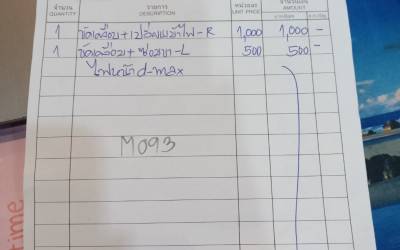 จำนวน รายการ หน่วยละ จำนวนเงิน
QUANTITY DESCRIPTION UNIT PRICE AMOUNT
1 ขัดเคลือบ+เปลี่ยนเบ้าไฟ-R 1,000 1,000 -
1 ขัดเคลือบ+ซ่อมขา-L 500 500 -
ไฟหน้า d-max
M093
time